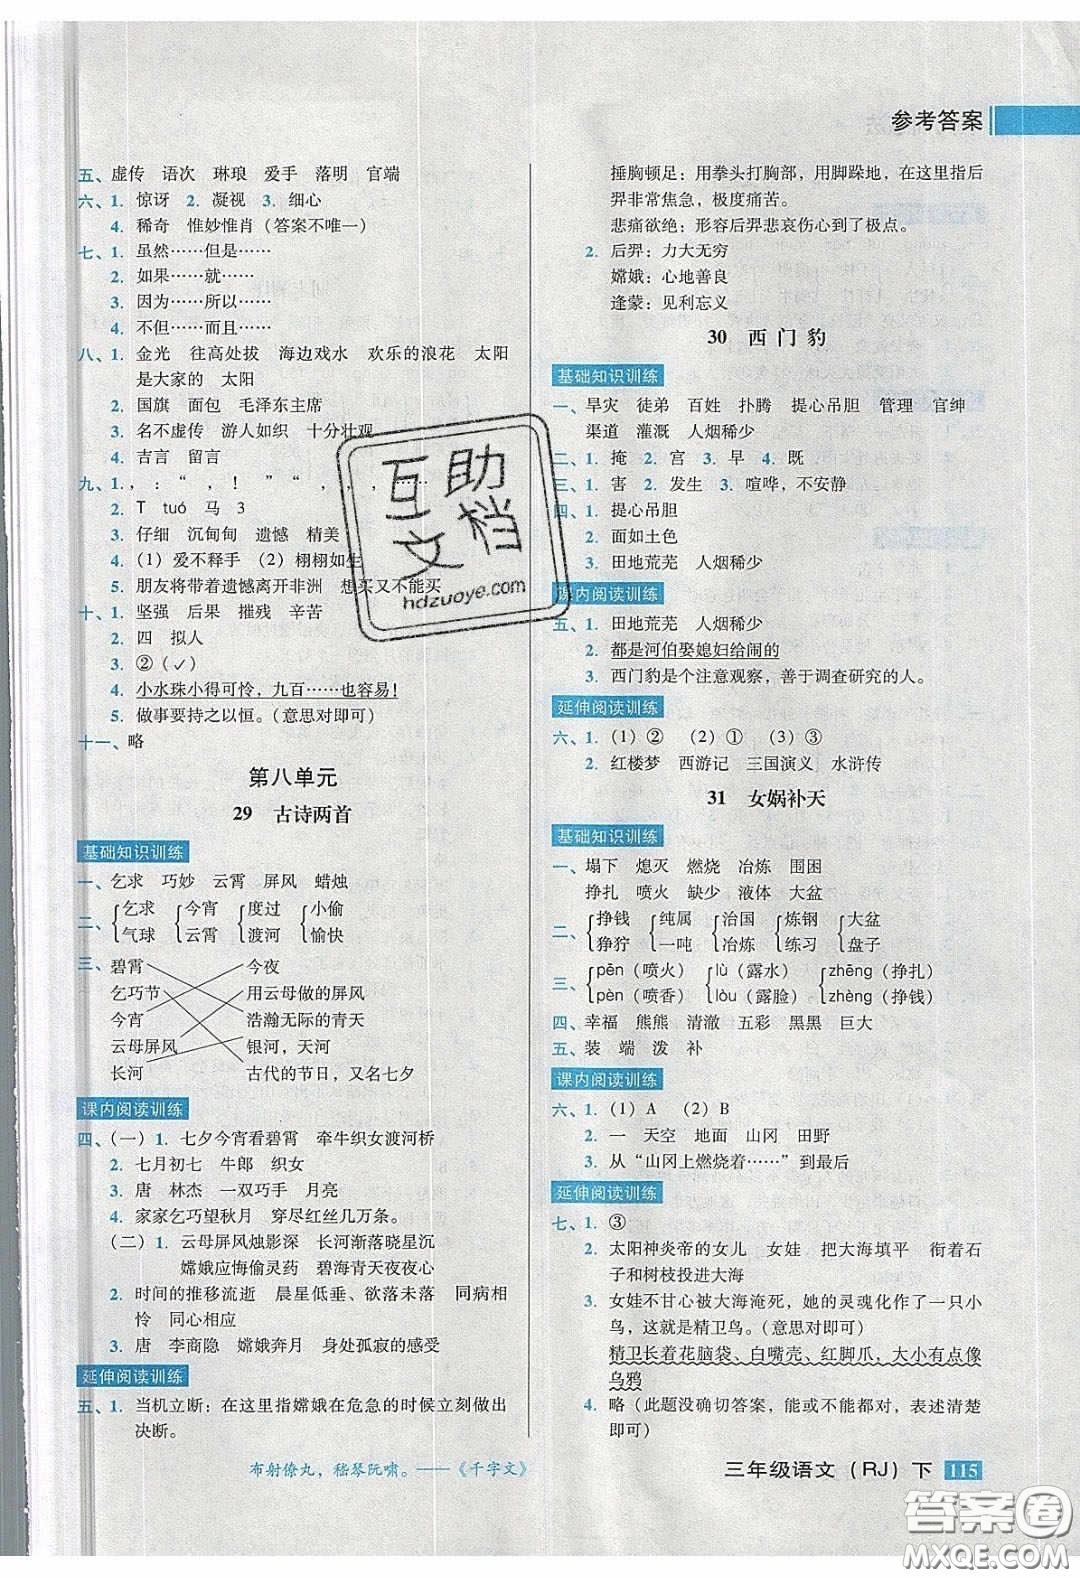 参考答案
五、虚传 语次 琳琅 爱手 落明 官端
六、1. 惊讶 2. 凝视 3. 细心
4. 稀奇 惟妙惟肖（答案不唯一）
七、1. 虽然……但是……
2. 如果……就……
3. 因为……所以……
4. 不但……而且……
八、1. 金光 往高处拔 海边戏水 欢乐的浪花 太阳
是大家的 太阳
2. 国旗 面包 毛泽东主席
3. 名不虚传 游人如织 十分壮观
4. 吉言 留言
九、1. ，：“ ，！ ”“ ，，，……
2. T tuó 马 3
3. 仔细 沉甸甸 遗憾 精美
4.（1）爱不释手（2）栩栩如生
5. 朋友将带着遗憾离开非洲 想买又不能买
十、1. 坚强 后果 摧残 辛苦
2. 四 拟人
3. ②（✓）
4. 小水珠小得可怜，九百……也容易！
5. 做事要持之以恒。（意思对即可）
十一、略
第八单元
29 古诗两首
基础知识训练
一、乞求 巧妙 云霄 屏风 蜡烛
二、{乞求 {今宵 {度过 {小偷
气球 云霄 渡河 愉快
三、碧霄 今夜
乞巧节 用云母做的屏风
今宵 浩瀚无际的青天
云母屏风 银河，天河
长河 古代的节日，又名七夕
课内阅读训练
四、（一）1. 七夕今宵看碧霄 牵牛织女渡河桥
2. 七月初七 牛郎 织女
3. 唐 林杰 一双巧手 月亮
4. 家家乞巧望秋月 穿尽红丝几万条。
（二）1. 云母屏风烛影深 长河渐落晓星沉
嫦娥应悔偷灵药 碧海青天夜夜心
2. 时间的推移流逝 晨星低垂、欲落未落 同病相
怜 同心相应
3. 唐 李商隐 嫦娥奔月 身处孤寂的感受
延伸阅读训练
五、1. 当机立断：在这里指嫦娥在危急的时候立刻做出
决断。
捶胸顿足：用拳头打胸部，用脚跺地，在这里指后
羿非常焦急，极度痛苦。
悲痛欲绝：形容后羿悲哀伤心到了极点。
2. 后羿：力大无穷
嫦娥：心地善良
逢蒙：见利忘义
30 西门豹
基础知识训练
一、旱灾 徒弟 百姓 扑腾 提心吊胆 管理 官绅
渠道 灌溉 人烟稀少
二、1. 掩 2. 宫 3. 早 4. 既
三、1. 害 2. 发生 3. 喧哗，不安静
四、1. 提心吊胆
2. 面如土色
3. 田地荒芜 人烟稀少
课内阅读训练
五、1. 田地荒芜 人烟稀少
2. 都是河伯娶媳妇给闹的
3. 西门豹是个注意观察，善于调查研究的人。
延伸阅读训练
六、1.（1）②（2）①（3）③
2. 红楼梦 西游记 三国演义 水浒传
31 女娲补天
基础知识训练
一、塌下 熄灭 燃烧 冶炼 围困
挣扎 喷火 缺少 液体 大盆
二、{挣钱 {纯属 {治国 {炼钢 {大盆
狰狞 一吨 冶炼 练习 盘子
三、{pēn（喷火） {lù（露水） {zhēng（挣扎）
pèn（喷香） lòu（露脸） zhèng（挣钱）
四、幸福 熊熊 清澈 五彩 黑黑 巨大
五、装 端 泼 补
课内阅读训练
六、1.（1）A （2）B
2. 一 天空 地面 山冈 田野
3. 从“山冈上燃烧着……”到最后
延伸阅读训练
七、1. ③
2. 太阳神炎帝的女儿 女娃 把大海填平 衔着石
子和树枝投进大海
3. 女娃不甘心被大海淹死，她的灵魂化作了一只小
鸟，这就是精卫鸟。（意思对即可）
精卫长着花脑袋、白嘴壳、红脚爪，大小有点像
乌鸦
4. 略（此题没确切答案，能或不能都对，表述清楚
即可）
布射僚丸，嵇琴阮啸。——《千字文》
三年级语文（RJ）下 115
互助文档
hdzuoye.com
答案圈
MXQE.COM